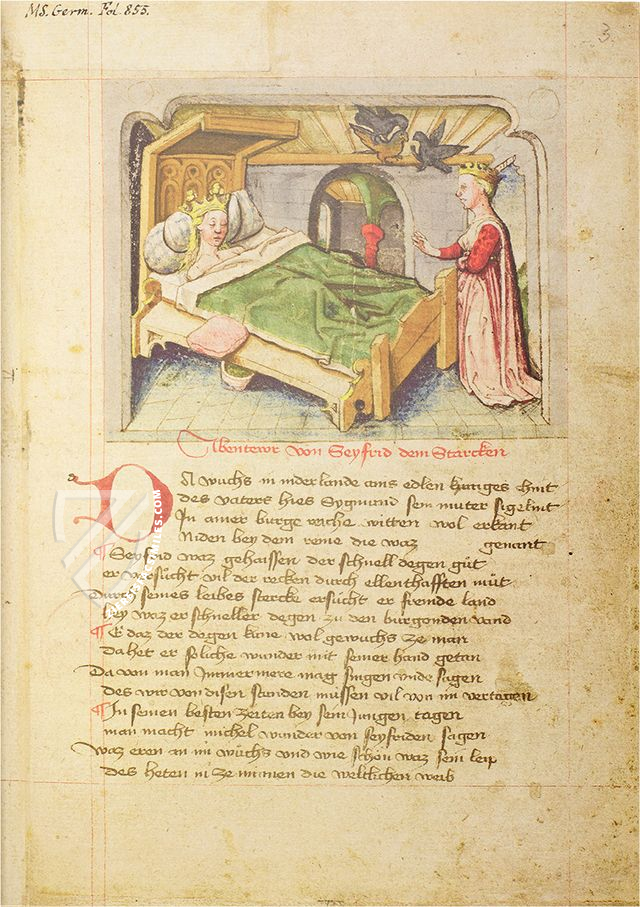 MS. Germ. Fol. 855.
3.
Abentewr von Seyfrid dem Starcken
DA wuchs in niderlande ains edlen kuniges chint
des vaters hies Sygmund sein muter sigelint
In ainer burge reiche witten wol erkant
Niden bey dem reine die waz genant
Seyfrid waz gehaissen der schnell degen gůt
er versůcht vil der recken durch ellenthafften můt
Durch seines leibes stercke ersůcht er fremde land
hey waz er schneller degen zu den burgonden vand
E daz der degen kůne wol gewuchs ze man
da het er soliche wunder mit seiner hand getan
Da von man Immermere mag singen unde sagen
des wir von disen stunden mussen vil von im vertagen
In seinen besten zeiten bey sein Jungen tagen
man macht michel wunder von seyfriden sagen
waz eren an im wůchs und wie schön waz sein leip
des heten in ze minnen die weltlichen weib